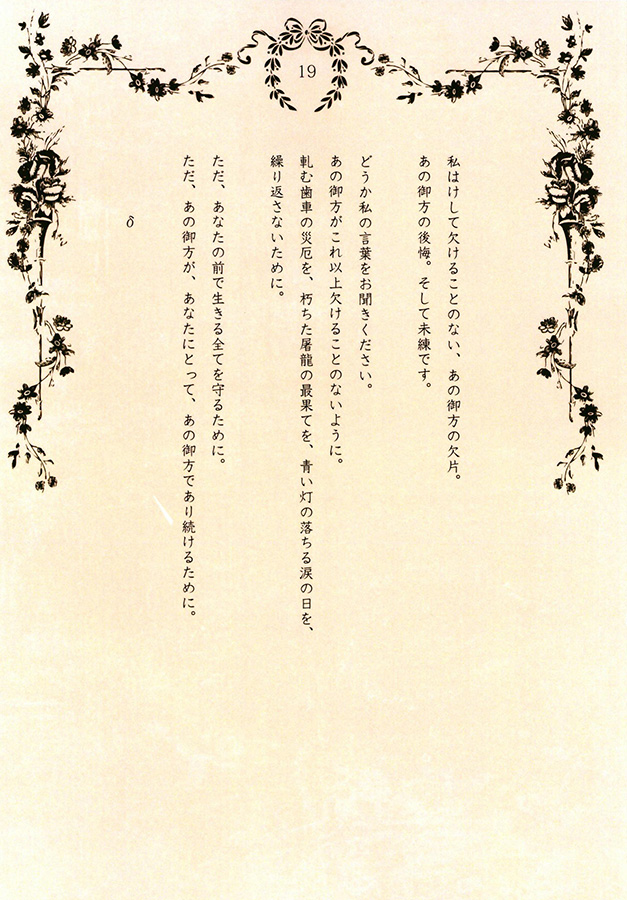 19
私はけして欠けることのない、あの御方の欠片。
あの御方の後悔。そして未練です。
どうか私の言葉をお聞きください。
あの御方がこれ以上欠けることのないように。
軋む歯車の災厄を、朽ちた屠龍の最果てを、青い灯の落ちる涙の日を、
繰り返さないために。
ただ、あなたの前で生きる全てを守るために。
ただ、あの御方が、あなたにとって、あの御方であり続けるために。
δ